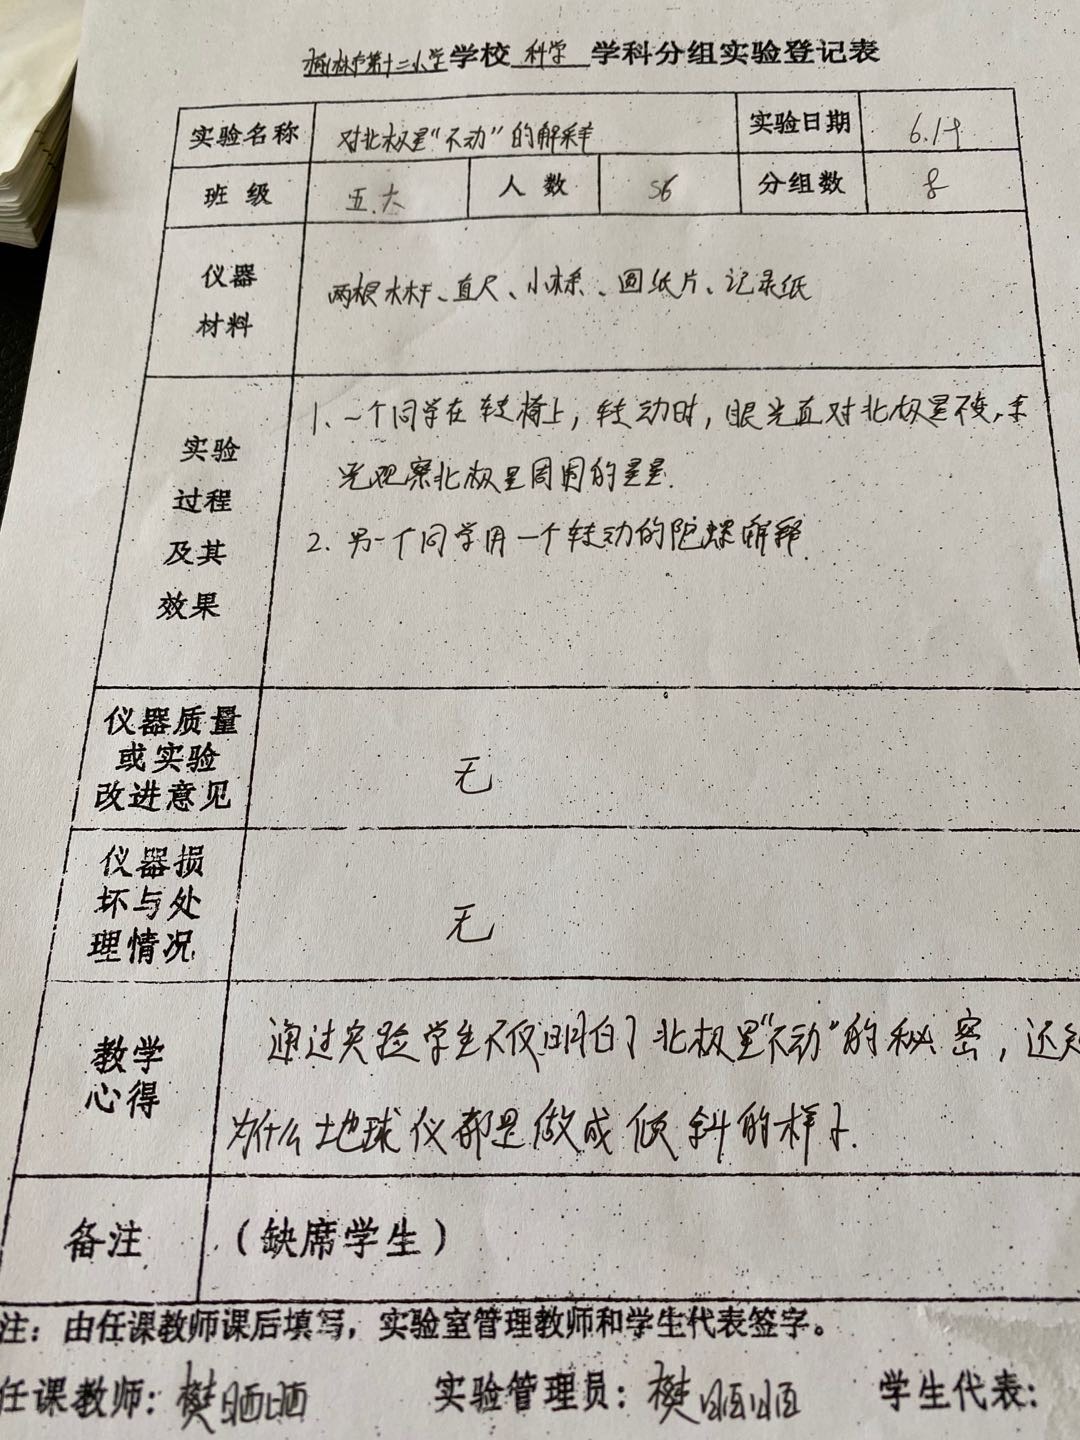 榆林市第十二小学学校 科学 学科分组实验登记表
实验名称 对北极星“不动”的解释 实验日期
班级 五.六 人数 56 分组数 8
仪器材料 两根木杆、直尺、小桶、圆纸片、记录纸
实验过程及其效果
1. 一个同学在转椅上，转动时，眼光直对北极星不变，余
光观察北极星周围的星星.
2. 另一个同学用一个转动的陀螺解释.
仪器质量或实验改进意见 无
仪器损坏与处理情况 无
教学心得
通过实验学生不仅明白了北极星“不动”的秘密，还知
为什么地球仪都是做成倾斜的样子.
备注 （缺席学生）
注：由任课教师课后填写，实验室管理教师和学生代表签字。
任课教师：樊 实验管理员：樊 学生代表：